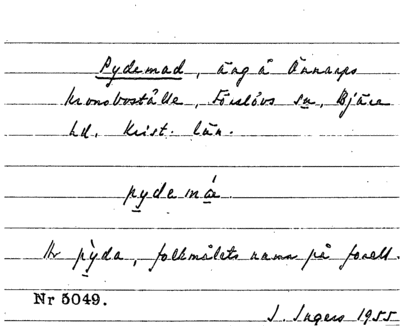 Pydemad, äng å Ännarps
kronoboställe, Förslövs sn, Bjäre
hd. Krist. län.
pydemá
Av pỳda, folkmålets namn på forell.
Nr 5049.
I. Ingers 1955